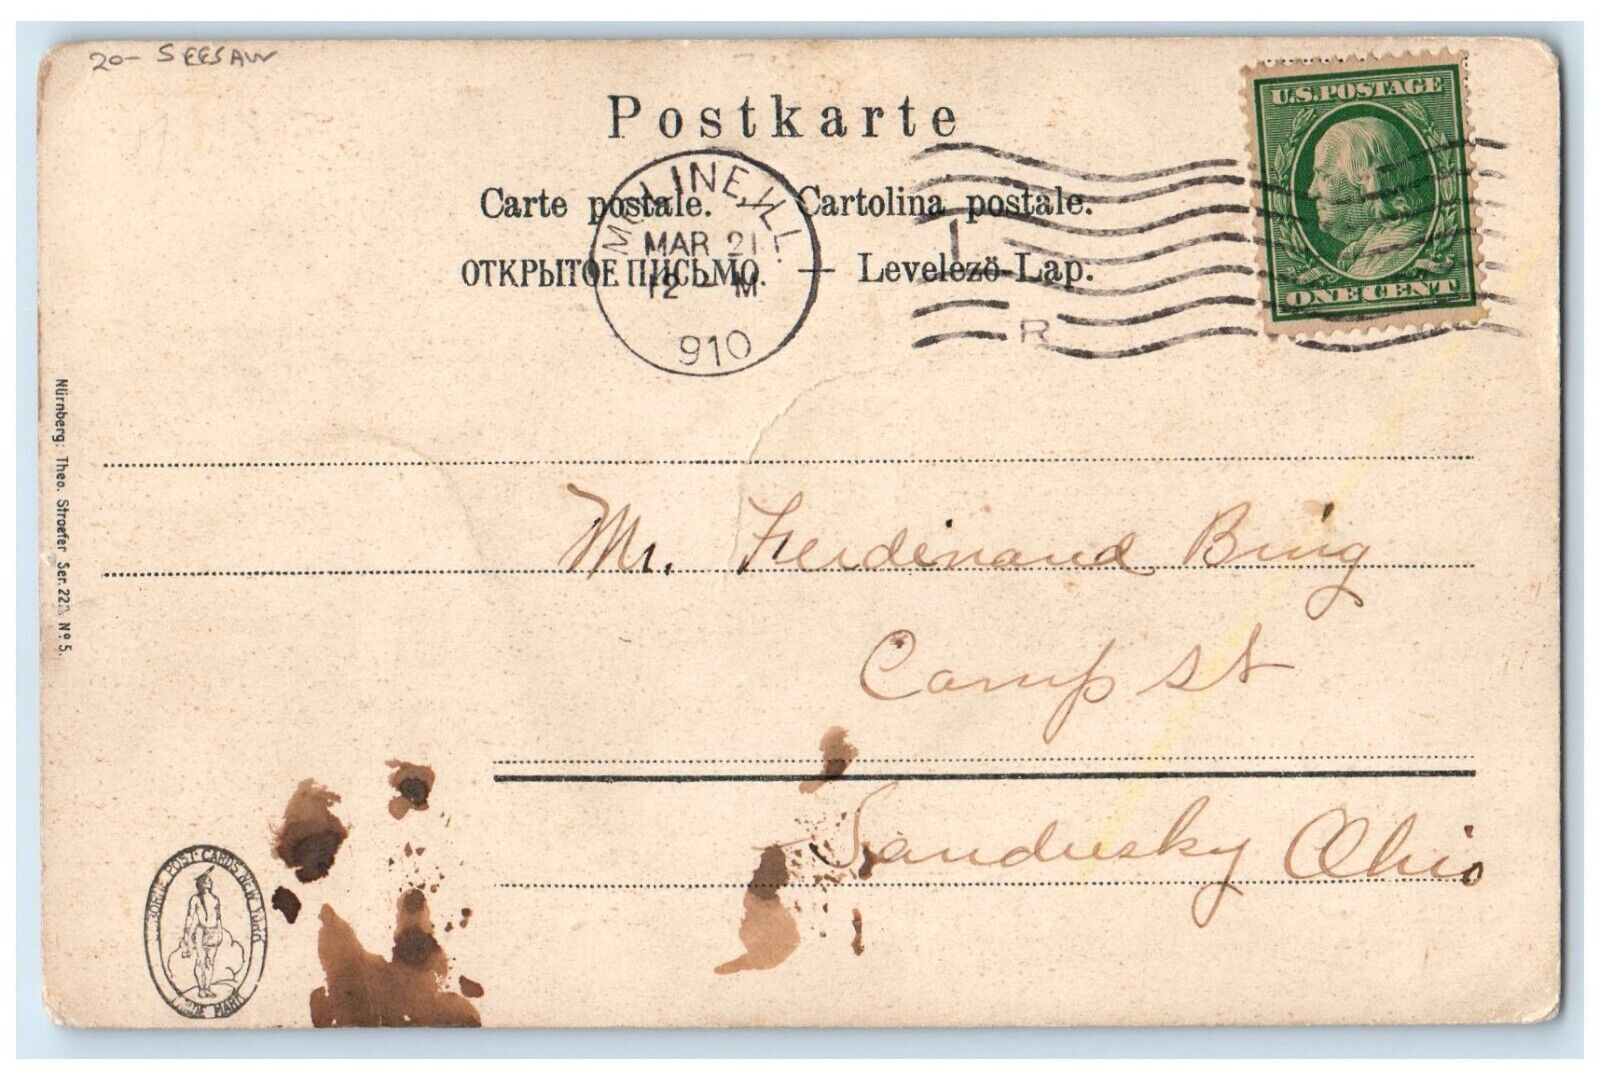 20- SEESAW
Postkarte
U.S. POSTAGE
ONE CENT
Carte postale. Cartolina postale.
ОТКРЫТОЕ ПИСЬМО. — Levelezö-Lap.
MOLINE, ILL.
MAR 21
12 - M
910
1
R
Nürnberg: Theo. Stroefer Ser. 222 Nº 5.
Mr. Ferdinand Bing
Camp St
Sandusky Ohio
POST CARDS NEW YORK
TRADE MARK